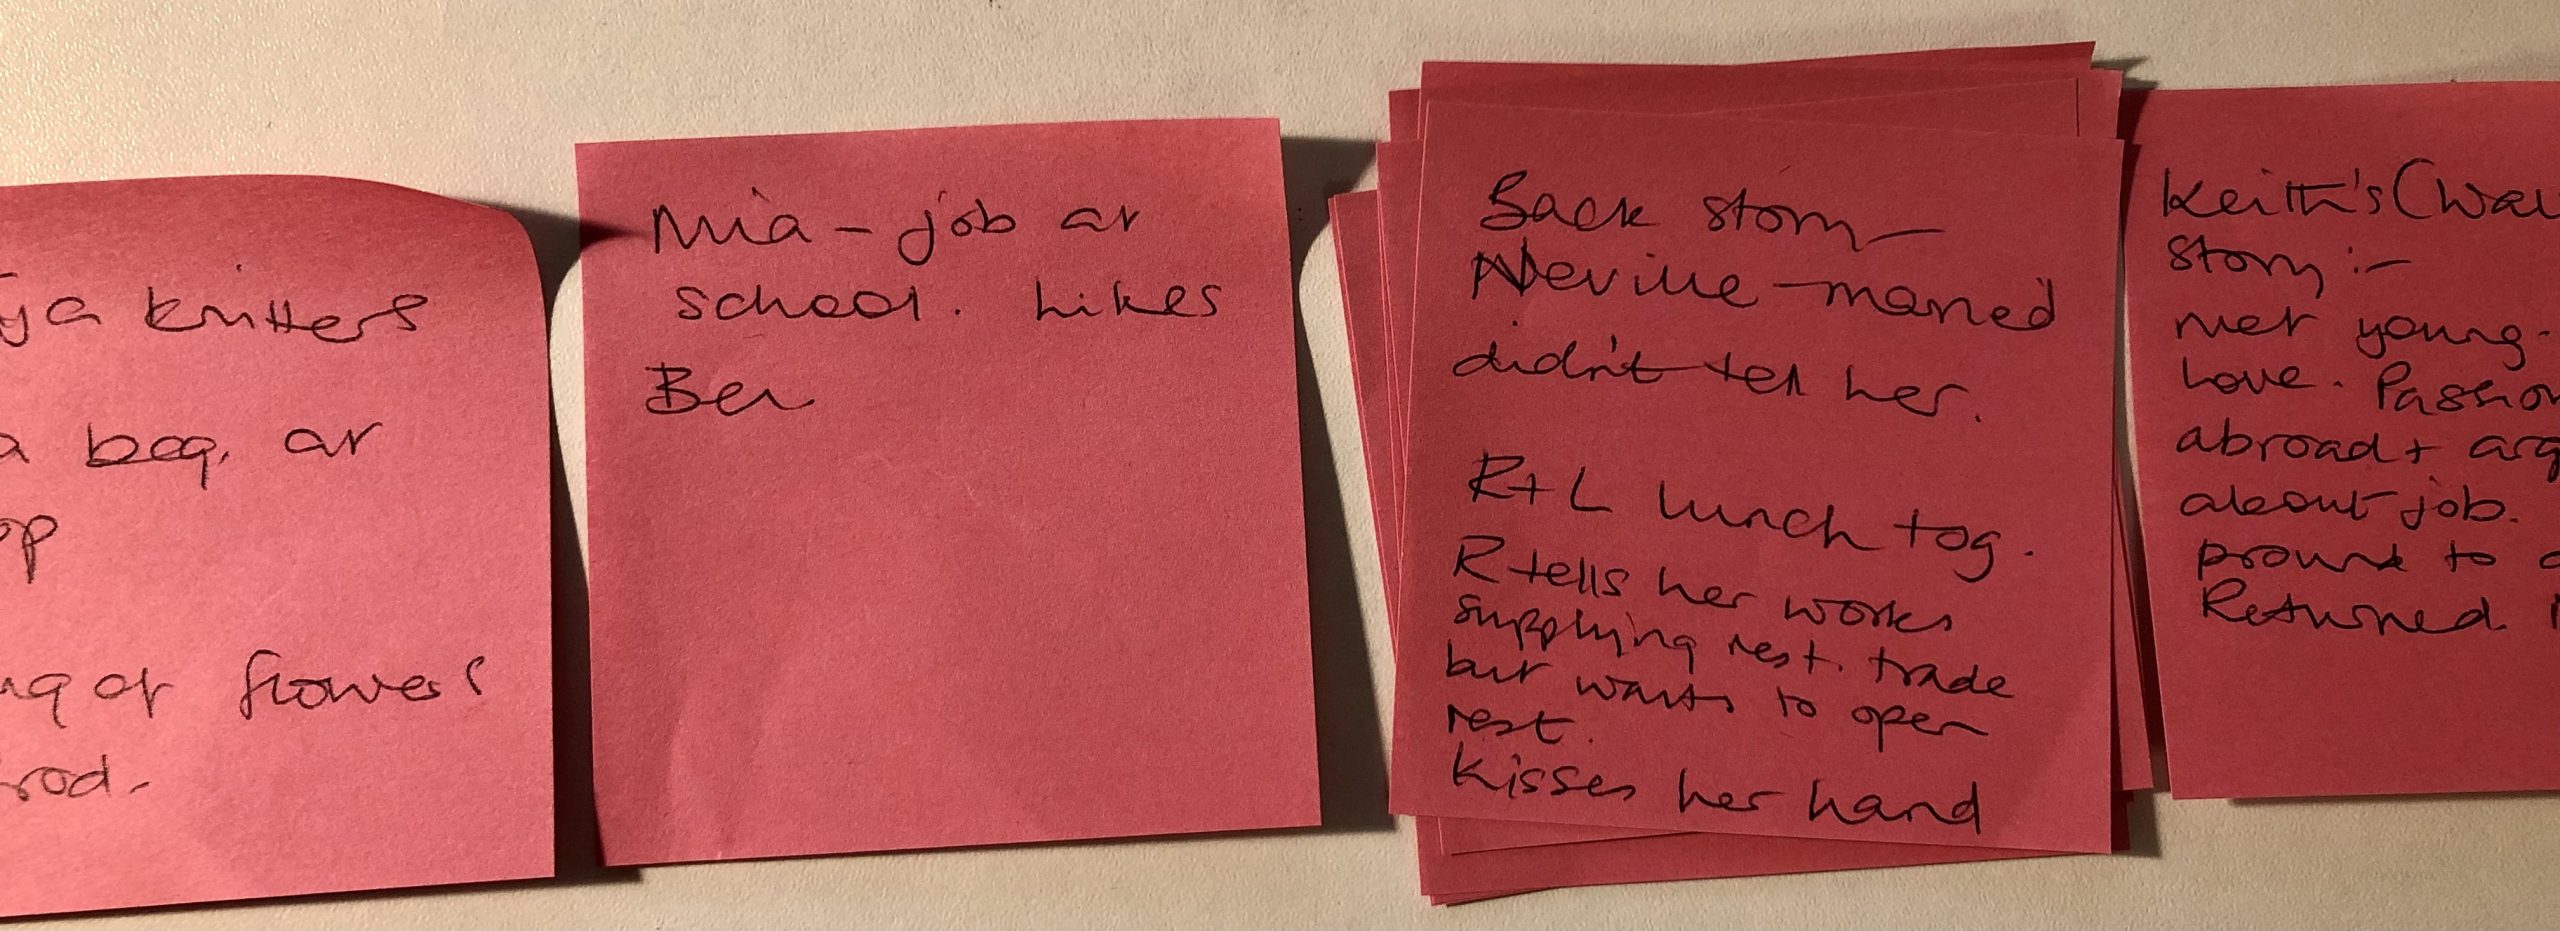 knitters
a beg. at
op
flowers
rod.
Mia - job at
school. Likes
Ben
Back story -
Neville - married
didn't tell her.
R + L lunch tog.
R tells her works
supplying rest. trade
but wants to open
rest.
Kisses her hand
Keith's (Wal
story :-
Met young.
Love. Passion
abroad + arg
about job.
proud to
Returned